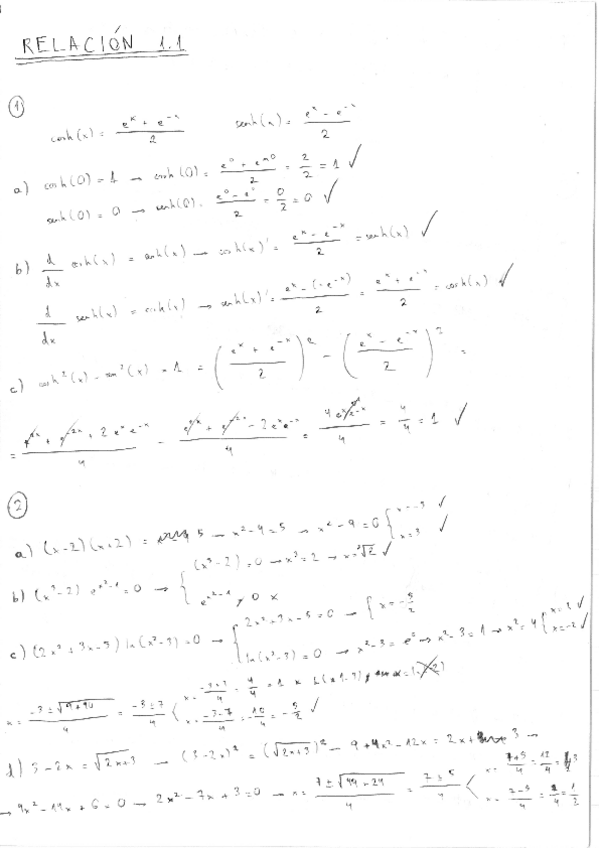 RELACIÓN 1.1
①
cosh(x) = (e^x + e^-x)/2   senh(x) = (e^x - e^-x)/2
a) cosh(0) = 1 → cosh(0) = (e^0 + e^-0)/2 = 2/2 = 1 ✓
senh(0) = 0 → senh(0) = (e^0 - e^0)/2 = 0/2 = 0 ✓
b) d/dx cosh(x) = senh(x) → cosh(x)' = (e^x - e^-x)/2 = senh(x) ✓
d/dx senh(x) = cosh(x) → senh(x)' = (e^x - (-e^-x))/2 = (e^x + e^-x)/2 = cosh(x) ✓
c) cosh²(x) - senh²(x) = 1 = ((e^x + e^-x)/2)² - ((e^x - e^-x)/2)² =
= (e^2x + e^-2x + 2e^x e^-x)/4 - (e^2x + e^-2x - 2e^x e^-x)/4 = (4e^x e^-x)/4 = 4/4 = 1 ✓
②
a) (x-2)(x+2) = 5 → x²-4=5 → x²-9=0 { x=-3 ✓ x=3 ✓
b) (x³-2) e^(x²-1) = 0 → { (x³-2)=0 → x³=2 → x=³√2 ✓
e^(x²-1) ≠ 0 x
c) (2x²+3x-5) ln(x²-3) = 0 → { 2x²+3x-5=0 → { x=-5/2
ln(x²-3)=0 → x²-3=e^0 → x²-3=1 → x²=4 { x=2 ✓ x=-2 ✓
x = (-3±√(9+40))/4 = (-3±7)/4 < x = (-3+7)/4 = 4/4 = 1 x
x = (-3-7)/4 = -10/4 = -5/2 ✓
d) 3-2x=√(2x+3) → (3-2x)² = (√(2x+3))² → 9+4x²-12x = 2x+3 →
→ 4x²-14x+6=0 → 2x²-7x+3=0 → x = (7±√(49-24))/4 = (7±5)/4 < x = (7+5)/4 = 12/4 = 3
x = (7-5)/4 = 2/4 = 1/2